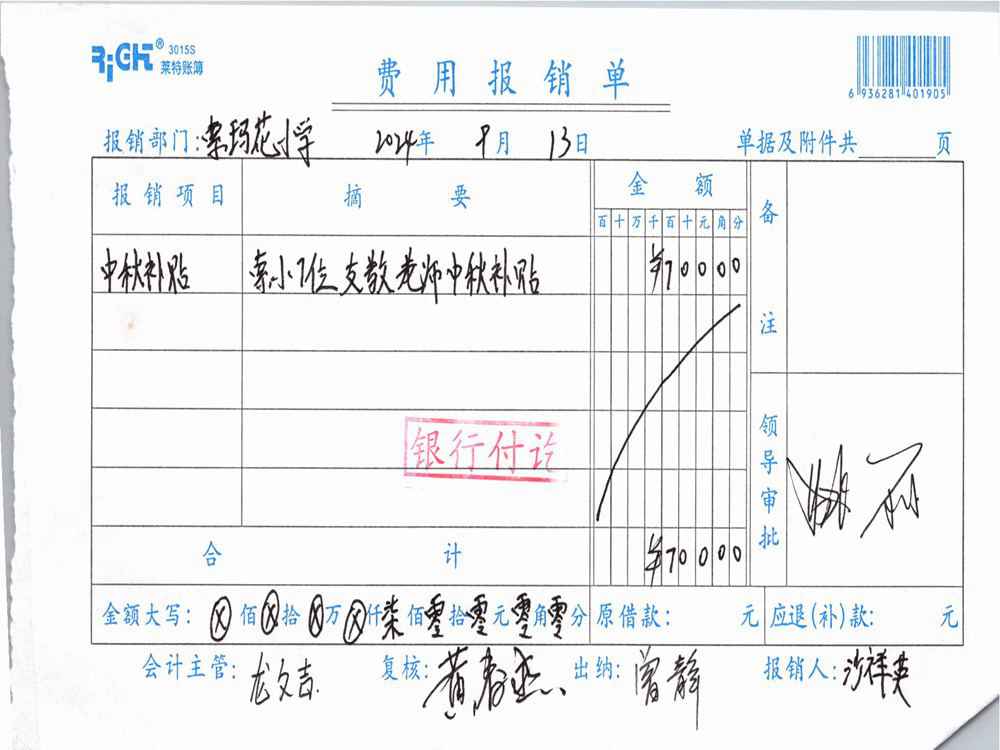 RiGHT® 3015S
莱特账簿
费用报销单
6 936281 401905
报销部门:索玛花小学 2024年 9月 13日 单据及附件共 页
报销项目 摘要 金额 备注
百十万千百十元角分
中秋补贴 索小7位支教老师中秋补贴 ¥70000
银行付讫
领导审批
合计 ¥70000
金额大写: ⊗佰⊗拾⊗万⊗仟柒佰零拾零元零角零分 原借款: 元 应退(补)款: 元
会计主管:龙文吉 复核:黄春燕 出纳:曾静 报销人:沙祥英